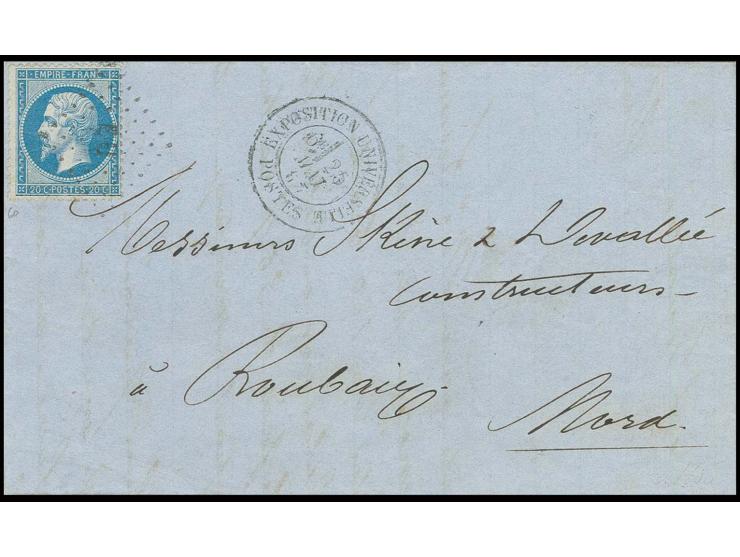 EMPIRE FRANC
20 C POSTES 20 C
EXPOSITION UNIVERSELLE
POSTES
25
MAI
Messieurs Skène & Devallée
constructeurs
à Roubaix
Nord.